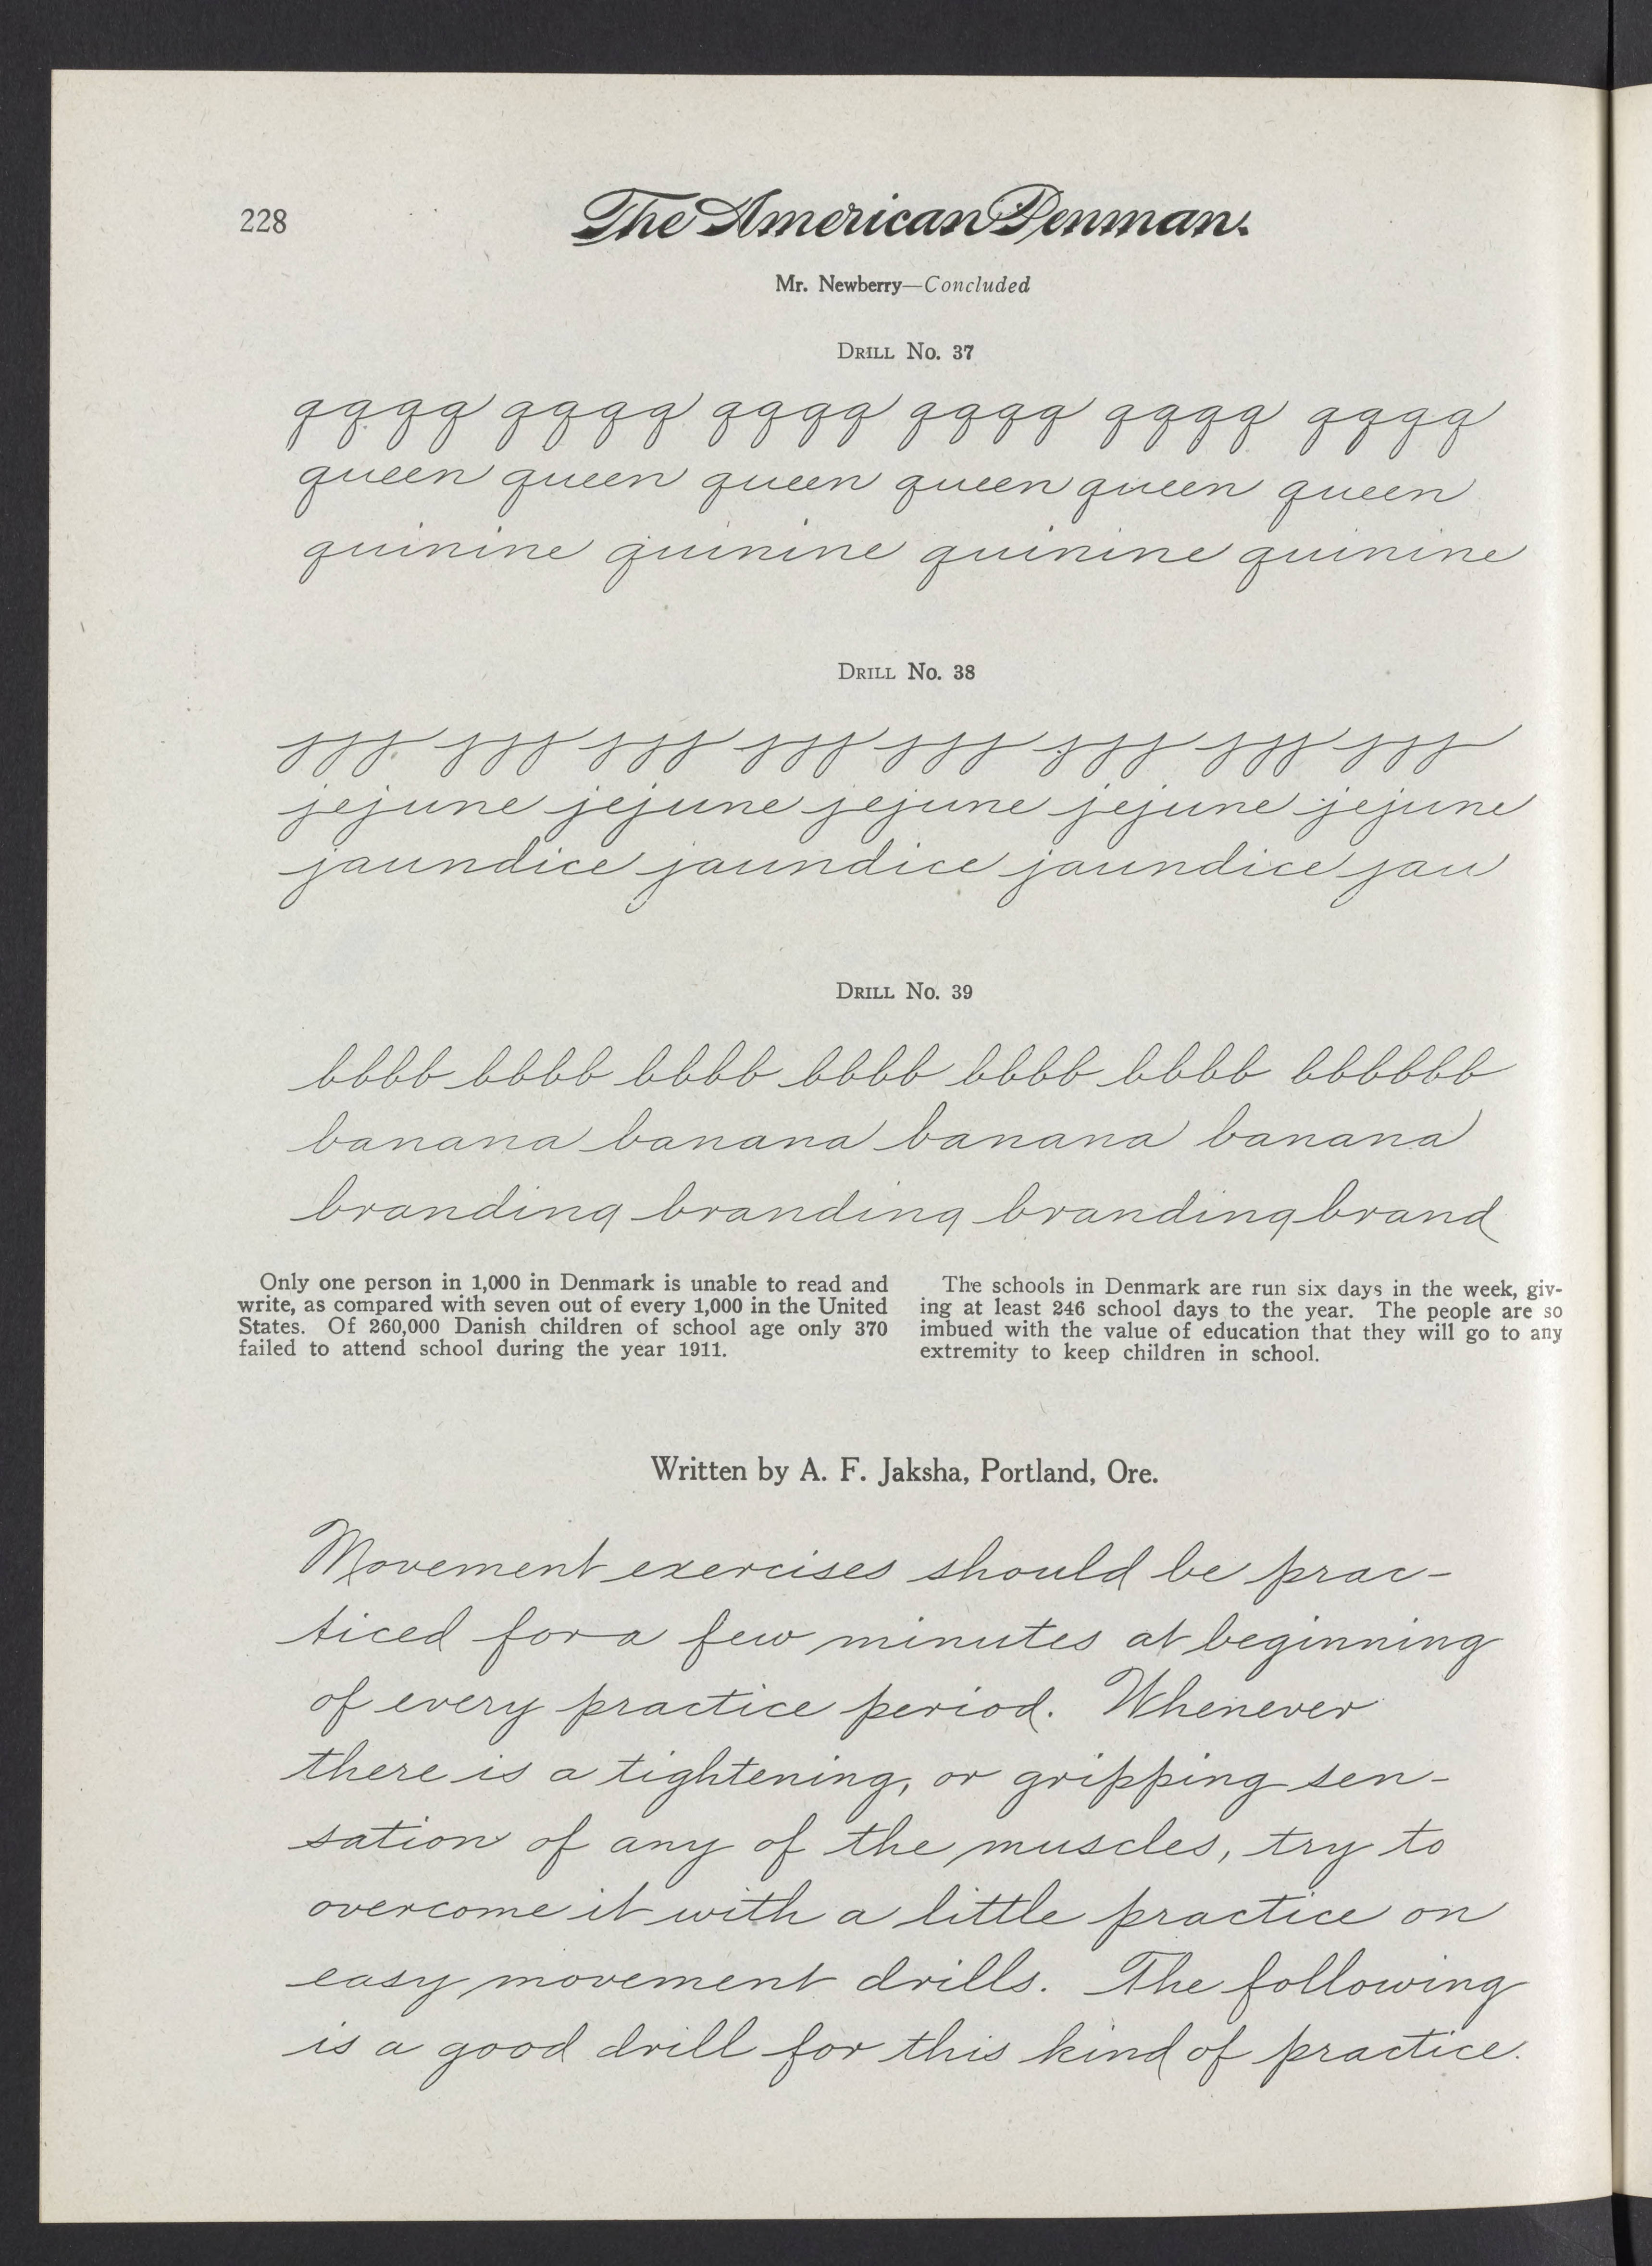 228
The American Penman.
Mr. Newberry—Concluded
Drill No. 37
qqqq qqqq qqqq qqqq qqqq qqqq
queen queen queen queen queen queen
quinine quinine quinine quinine
Drill No. 38
jjj jjj jjj jjj jjj jjj jjj jjj
jejune jejune jejune jejune jejune
jaundice jaundice jaundice jau
Drill No. 39
bbbb bbbb bbbb bbbb bbbb bbbb bbbbbb
banana banana banana banana
branding branding branding brand
Only one person in 1,000 in Denmark is unable to read and
write, as compared with seven out of every 1,000 in the United
States. Of 260,000 Danish children of school age only 370
failed to attend school during the year 1911.
The schools in Denmark are run six days in the week, giv-
ing at least 246 school days to the year. The people are so
imbued with the value of education that they will go to any
extremity to keep children in school.
Written by A. F. Jaksha, Portland, Ore.
Movement exercises should be prac-
ticed for a few minutes at beginning
of every practice period. Whenever
there is a tightening, or gripping sen-
sation of any of the muscles, try to
overcome it with a little practice on
easy movement drills. The following
is a good drill for this kind of practice.